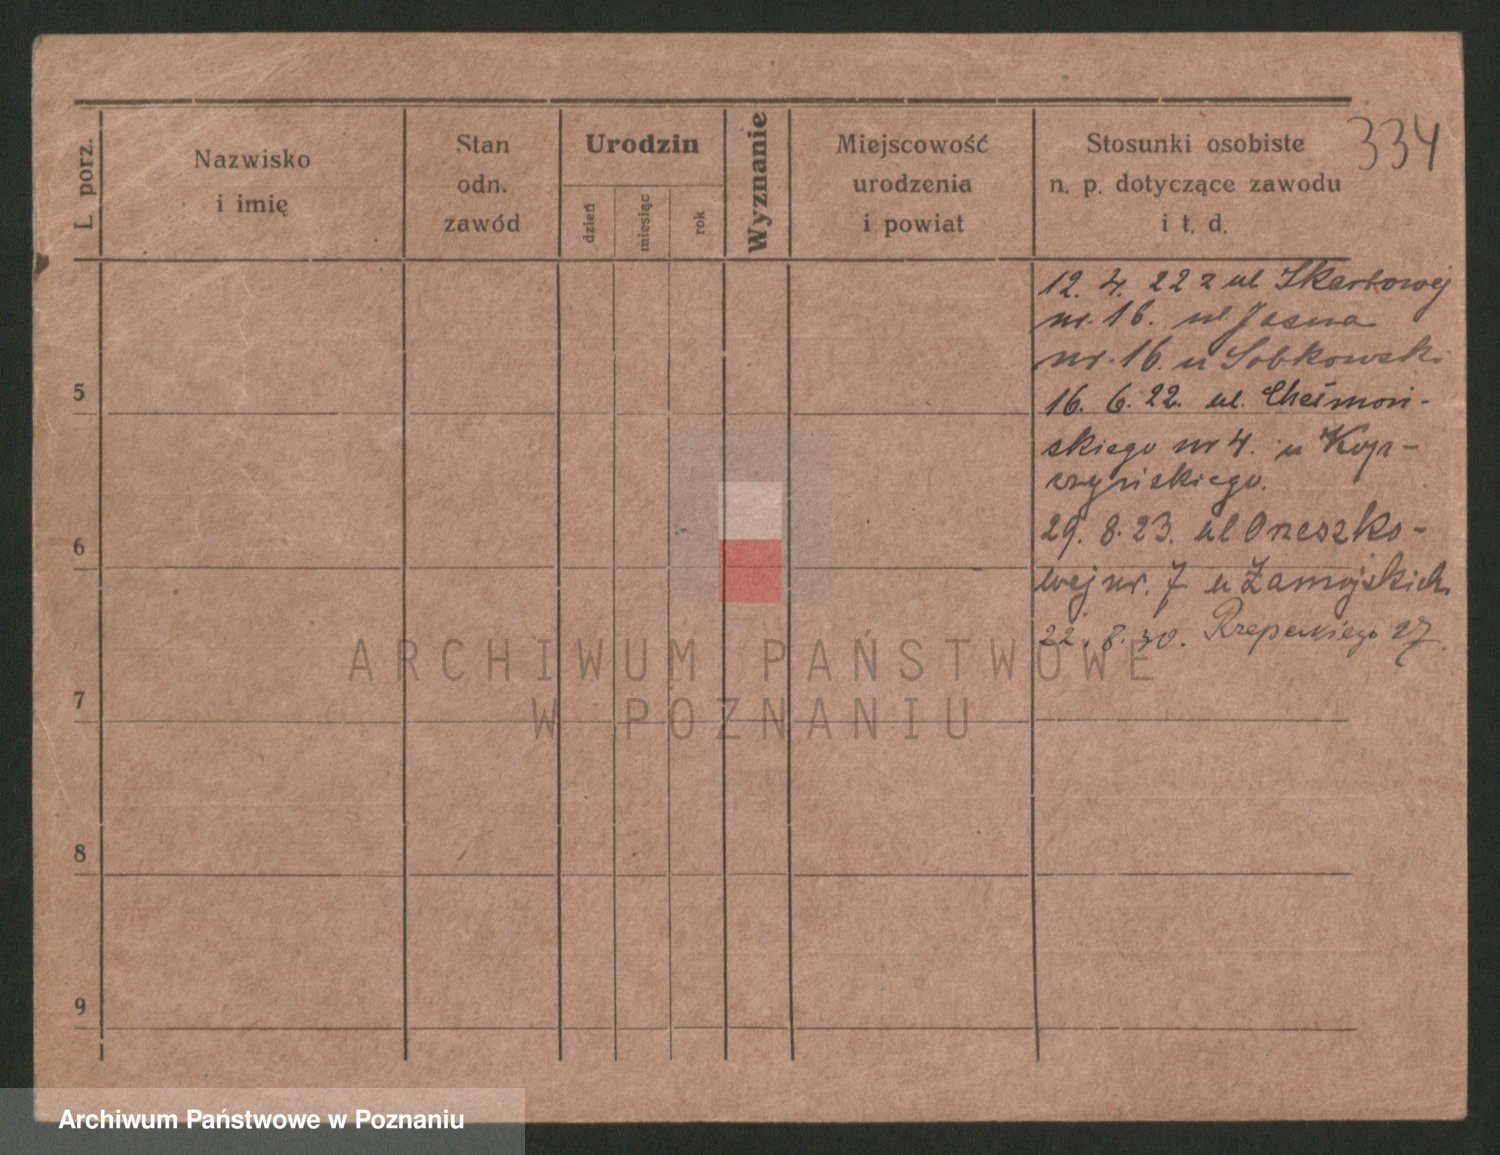 334
L. porz.
Nazwisko
i imię
Stan
odn.
zawód
Urodzin
dzień
miesiąc
rok
Wyznanie
Miejscowość
urodzenia
i powiat
Stosunki osobiste
n. p. dotyczące zawodu
i t. d.
12. 4. 22 z ul Skarbowej
nr. 16. ul. Jasna
nr. 16. u Sobkowski
16. 6. 22. ul. Chełmoń-
skiego nr 4. u Kop-
czyńskiego.
29. 8. 23. ul Orzeszko-
wej nr. 7 u Zamojskich
22. 8. 30. Rzepeckiego 27.
5
6
7
8
9
ARCHIWUM PAŃSTWOWE
W POZNANIU
Archiwum Państwowe w Poznaniu